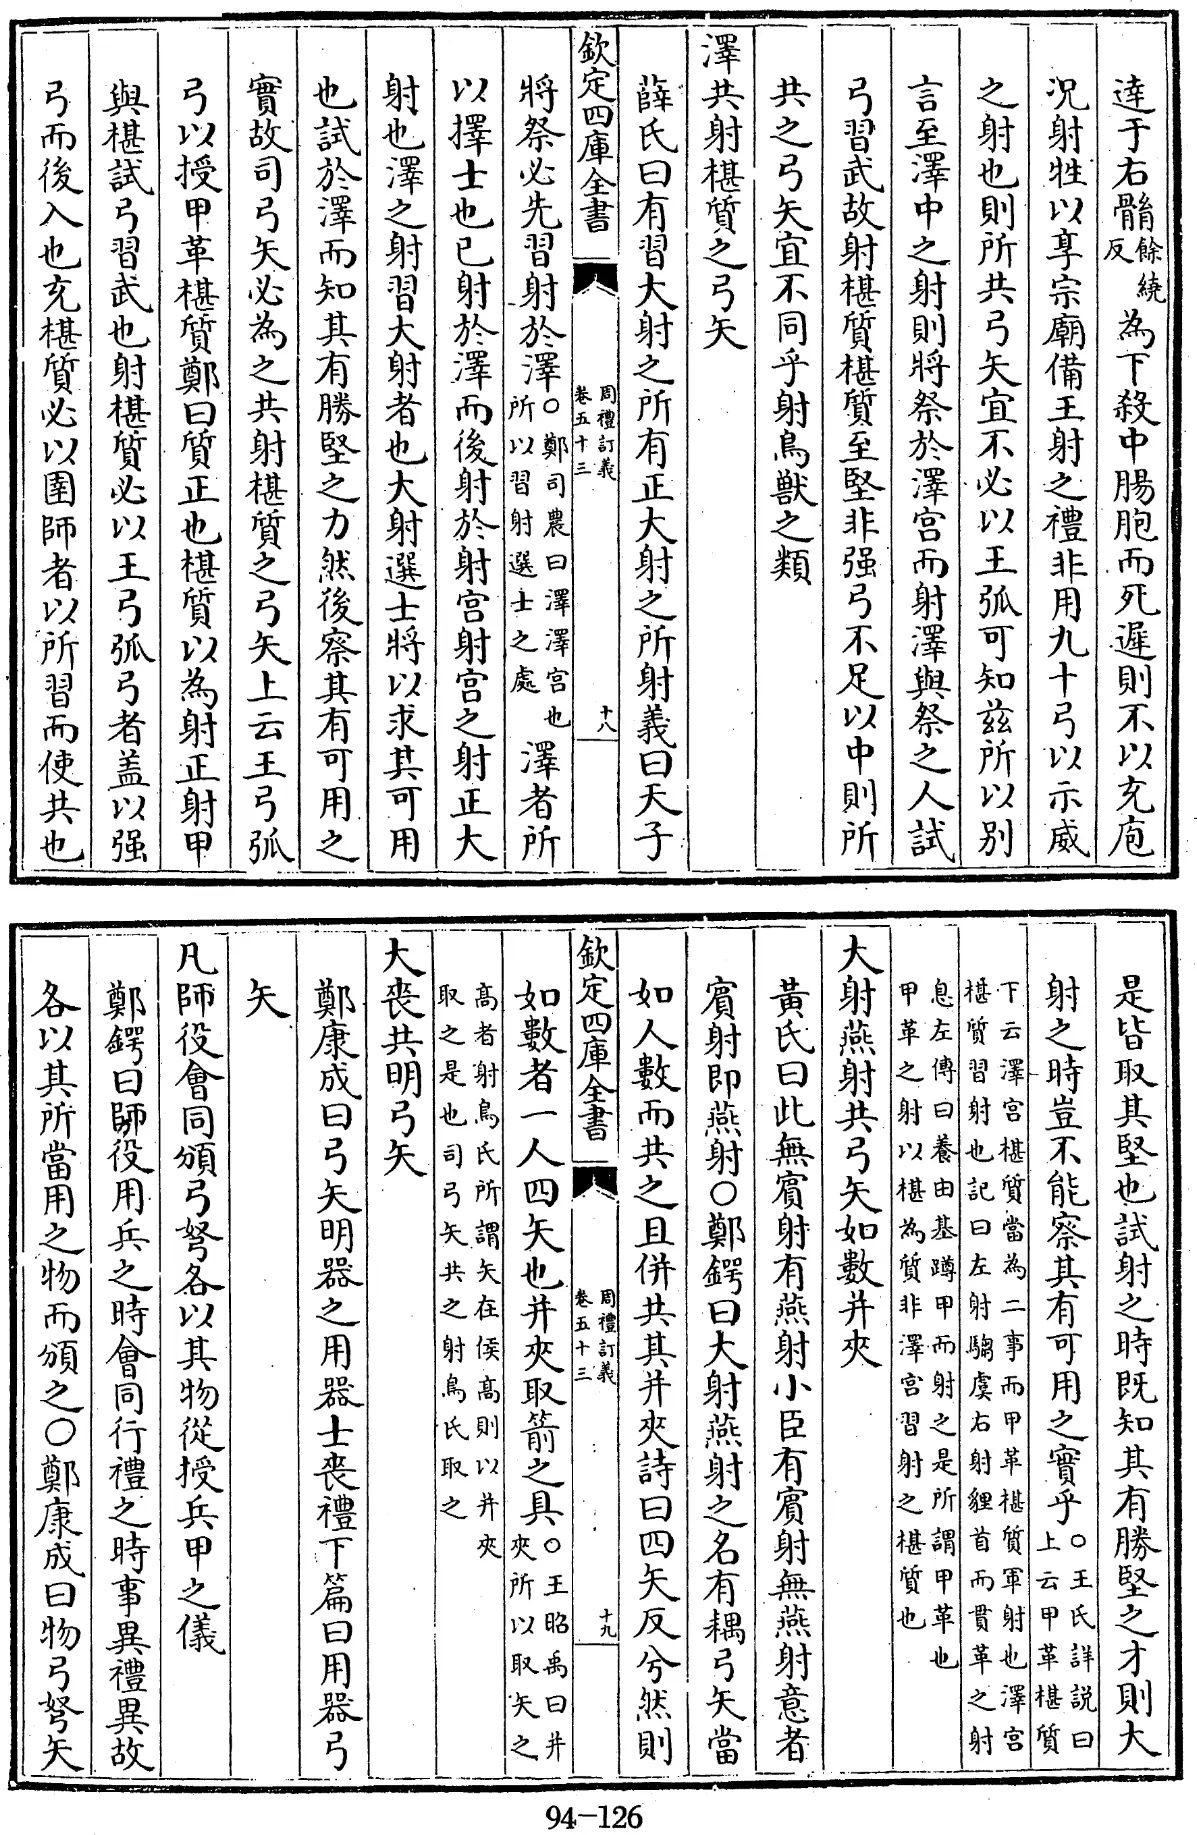 達于右髃餘繞反為下殺中腸胞而死遲則不以充庖
况射牲以享宗廟備王射之禮非用九十弓以示威
之射也則所共弓矢宜不必以王弧可知兹所以别
言至澤中之射則將祭於澤宫而射澤與祭之人試
弓習武故射椹質椹質至堅非强弓不足以中則所
共之弓矢宜不同乎射鳥獸之類
澤共射椹質之弓矢
薛氏曰有習大射之所有正大射之所射義曰天子
欽定四庫全書 周禮訂義 卷五十三 十八
將祭必先習射於澤○鄭司農曰澤澤宫也所以習射選士之處澤者所
以擇士也已射於澤而後射於射宫射宫之射正大
射也澤之射習大射者也大射選士將以求其可用
也試於澤而知其有勝堅之力然後察其有可用之
實故司弓矢必為之共射椹質之弓矢上云王弓弧
弓以授甲革椹質鄭曰質正也椹質以為射正射甲
與椹試弓習武也射椹質必以王弓弧弓者盖以强
弓而後入也充椹質必以圉師者以所習而使共也
是皆取其堅也試射之時既知其有勝堅之才則大
射之時豈不能察其有可用之實乎○王氏詳説曰上云甲革椹質
下云澤宫椹質當為二事而甲革椹質軍射也澤宫
椹質習射也記曰左射騶虞右射貍首而貫革之射
息左傳曰養由基蹲甲而射之是所謂甲革也
甲革之射以椹為質非澤宫習射之椹質也
大射燕射共弓矢如數并夾
黄氏曰此無賓射有燕射小臣有賓射無燕射意者
賓射即燕射○鄭鍔曰大射燕射之名有耦弓矢當
如人數而共之且併共其并夾詩曰四矢反兮然則
欽定四庫全書 周禮訂義 卷五十三 十九
如數者一人四矢也并夾取箭之具○王昭禹曰并夾所以取矢之
高者射鳥氏所謂矢在侯高則以并夾
取之是也司弓矢共之射鳥氏取之
大喪共明弓矢
鄭康成曰弓矢明器之用器士喪禮下篇曰用器弓
矢
凡師役會同頒弓弩各以其物從授兵甲之儀
鄭鍔曰師役用兵之時會同行禮之時事異禮異故
各以其所當用之物而頒之○鄭康成曰物弓弩矢
94-126